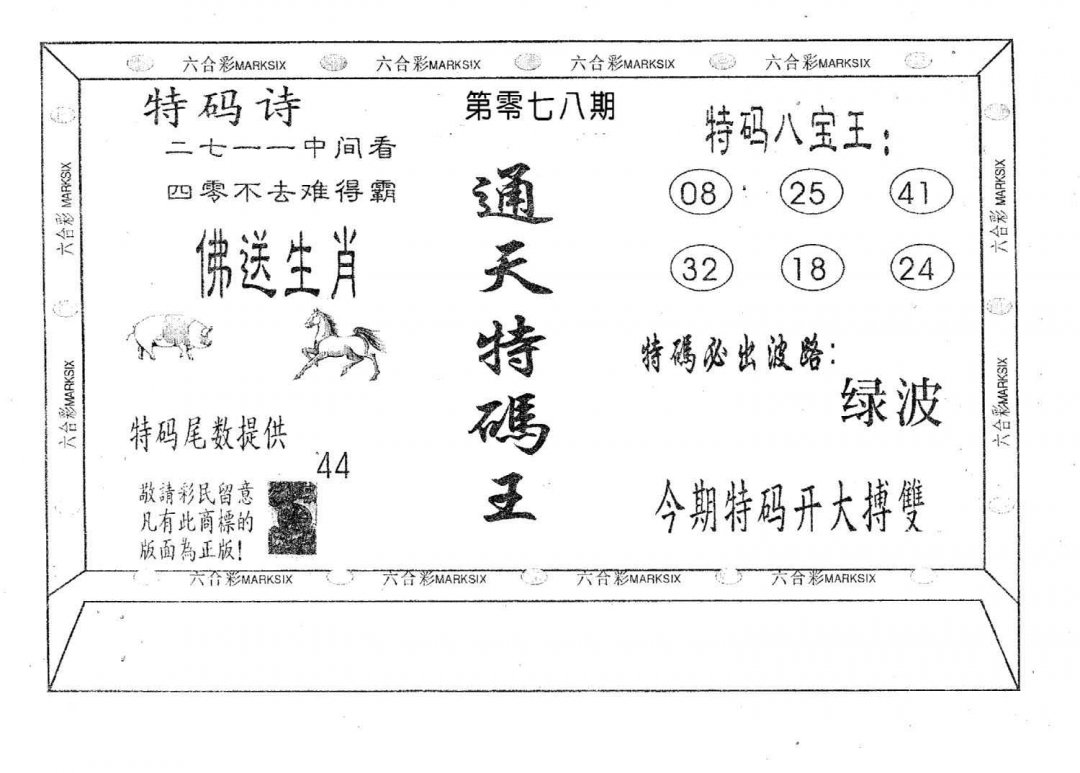 六合彩MARKSIX 六合彩MARKSIX 六合彩MARKSIX 六合彩MARKSIX
特码诗
二七一一中间看
四零不去难得霸
佛送生肖
特码尾数提供
44
敬請彩民留意
凡有此商標的
版面為正版!
第零七八期
通
天
特
碼
王
特码八宝王:
08 25 41
32 18 24
特碼必出波路:
绿波
今期特码开大搏雙
六合彩MARKSIX
六合彩MARKSIX
六合彩MARKSIX
六合彩MARKSIX
六合彩MARKSIX 六合彩MARKSIX 六合彩MARKSIX 六合彩MARKSIX